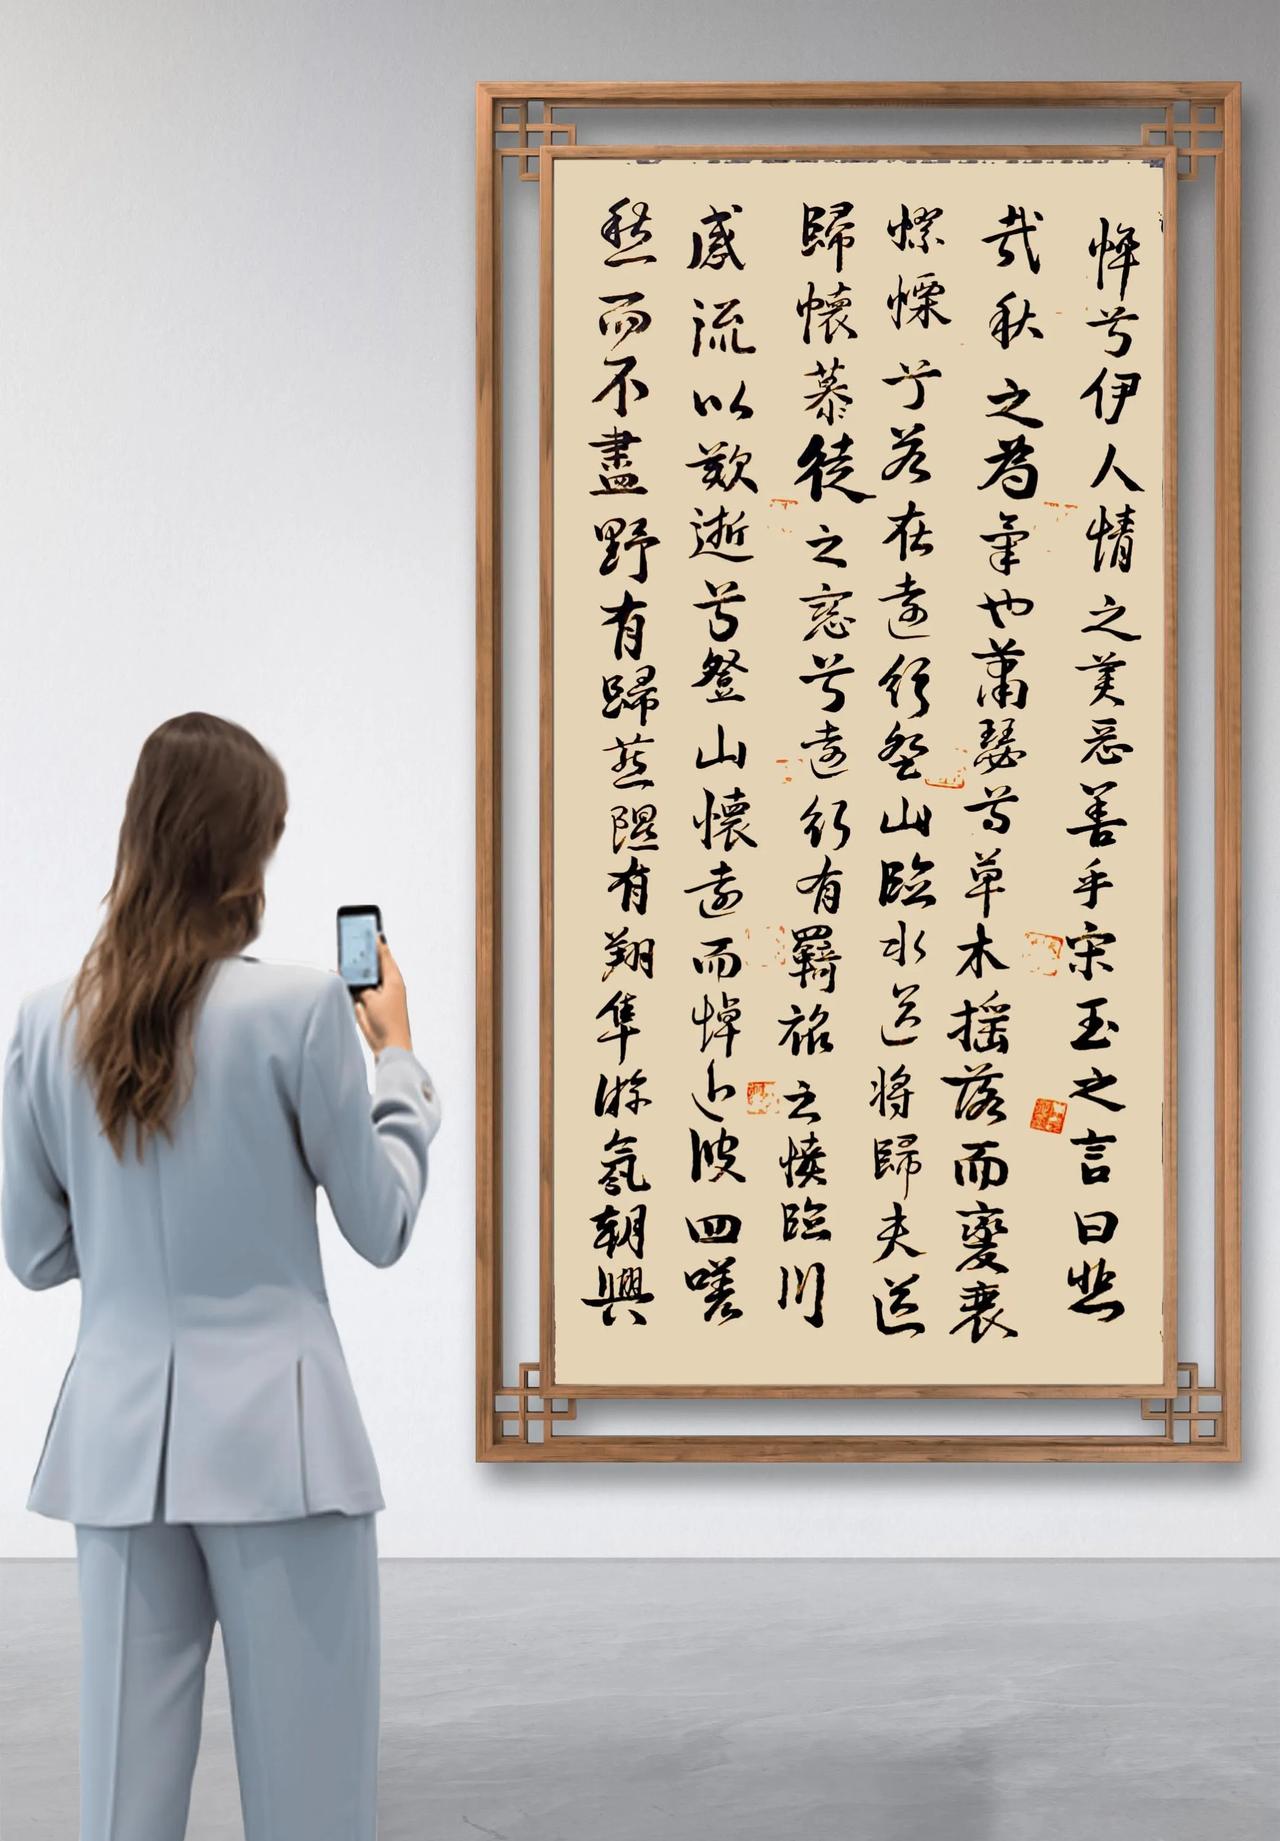 悴兮伊人情之美惡善乎宋玉之言曰悲
哉秋之為氣也蕭瑟兮草木搖落而變衰
憀慄兮若在遠行登山臨水送將歸夫送
歸懷慕徒之戀兮遠行有羇旅之憤臨川
感流以歎逝兮登山懷遠而悼近彼四嗟
愁而不盡野有歸燕隰有翔隼游氛朝興